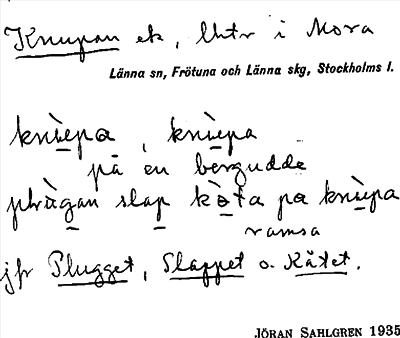 Knupan ek, Untr i Mora
Länna sn, Frötuna och Länna skg, Stockholms l.
knìepa, knìepa
på en bergudde
plùgan slap kòta pa knìepa
ramsa
jfr Plugget, Slappet o. Kåtet.
JÖRAN SAHLGREN 1935